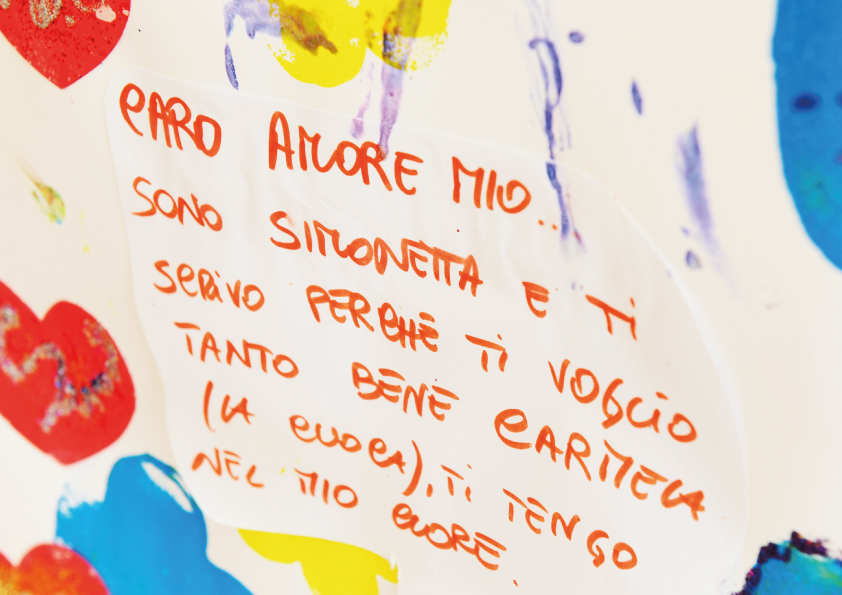 CARO AMORE MIO...
SONO SIMONETTA E TI
SCRIVO PERCHÈ TI VOGLIO
TANTO BENE CARMELA
(LA CUOCA), TI TENGO
NEL MIO CUORE.